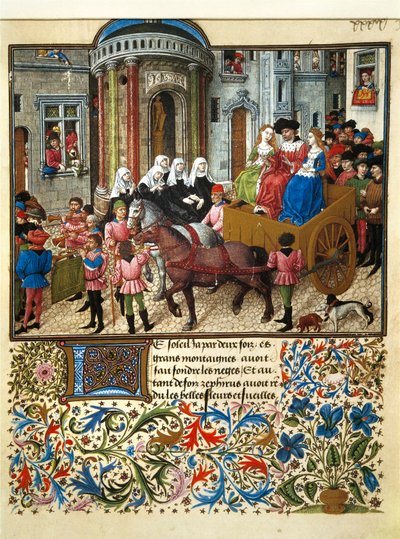 LE soleil ja par deux foiz es
grans montaignes auoit
fait fondre les neges Et au
tant de foiz zephirus auoit re
du les belles fleurs et fueilles